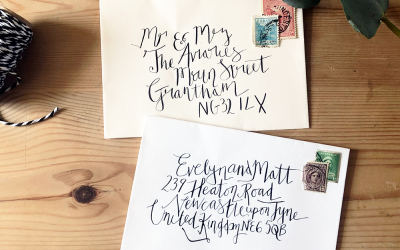 Mr & Mrs
The Avaries
Main Street
Grantham
NG32 1LX
Evelyn and Matt
239 Heaton Road
Newcastle upon Tyne
United Kingdom NE6 5QB